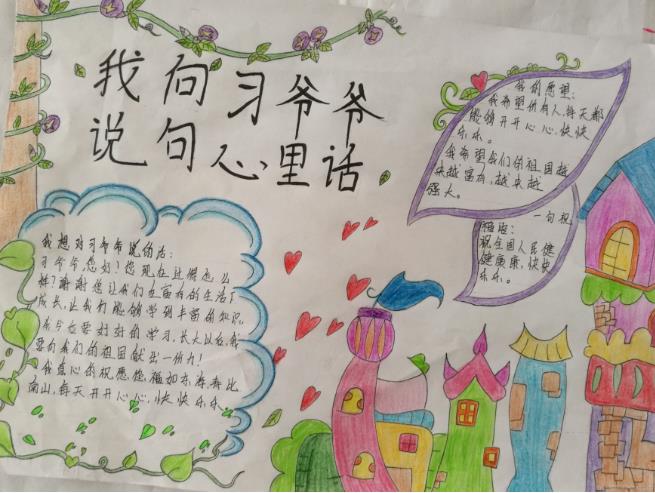 我向习爷爷
说句心里话
我想对习爷爷说的话：
习爷爷，您好！您现在过得怎么
样？谢谢您让我们在富有的生活下
成长，让我们能够学到丰富的知识，
我今后要好好的学习，长大以后，我
要为我们的祖国献出一份力！
我衷心的祝愿您，福如东海，寿比
南山，每天开开心心，快快乐乐。
我的愿望：
我希望所有人，每天都
能够开开心心，快快
乐乐。
我希望我们的祖国越
来越富有，越来越
强大。
一句祝
福语：
祝全国人民健
健康康，快快
乐乐。